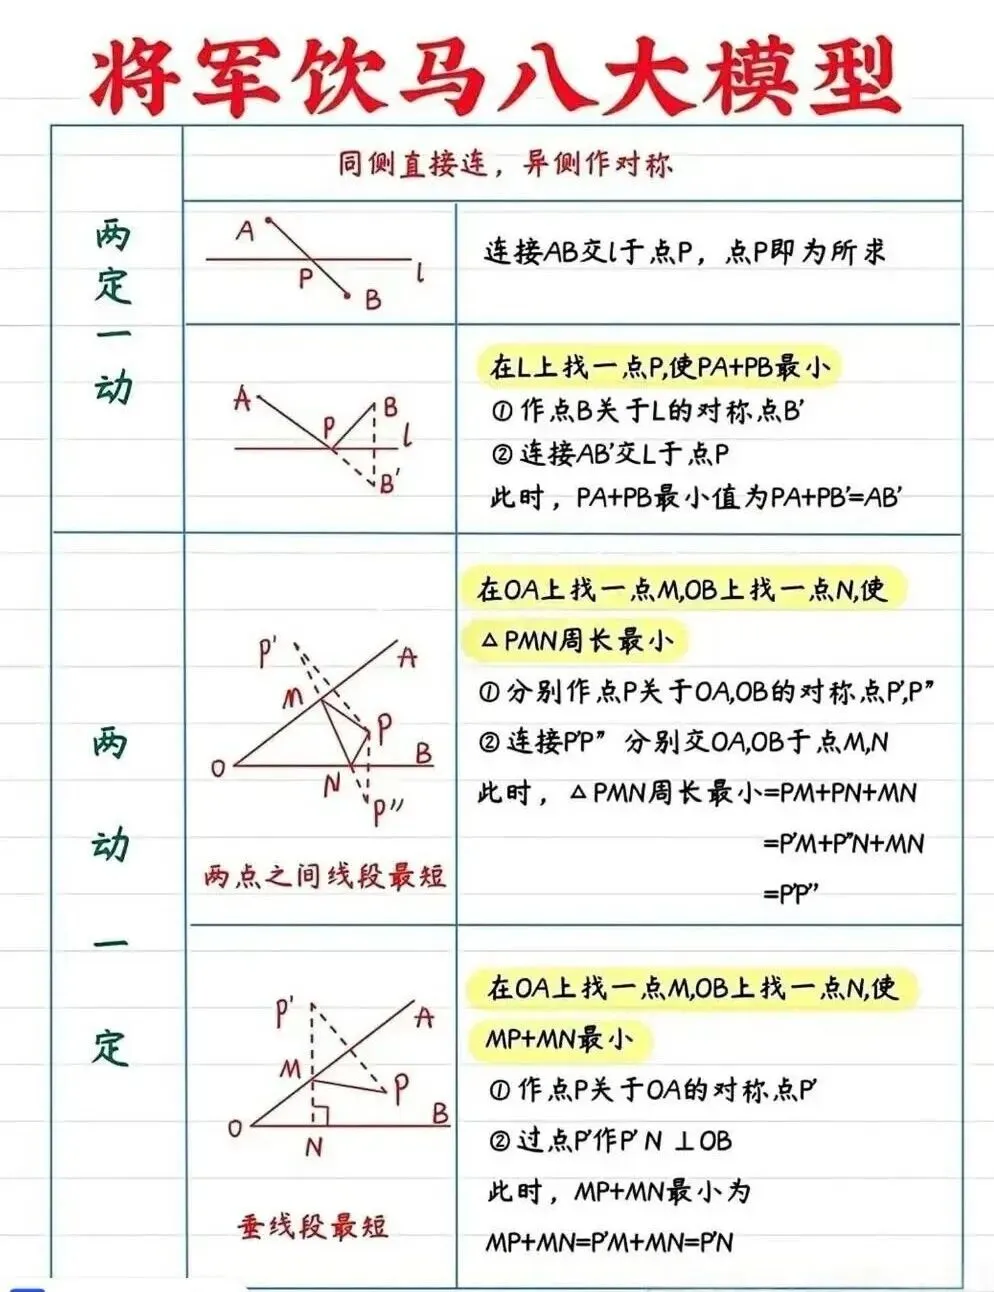 将军饮马八大模型
同侧直接连，异侧作对称
两定一动
A
P
l
B
连接AB交l于点P，点P即为所求
A
P
B
l
B'
在L上找一点P,使PA+PB最小
① 作点B关于L的对称点B'
② 连接AB'交L于点P
此时，PA+PB最小值为PA+PB'=AB'
两动一定
P'
A
M
P
O
N
B
P''
两点之间线段最短
在OA上找一点M,OB上找一点N,使
△PMN周长最小
① 分别作点P关于OA,OB的对称点P',P"
② 连接P'P" 分别交OA,OB于点M,N
此时，△PMN周长最小=PM+PN+MN
=P'M+P"N+MN
=P'P"
P'
A
M
P
O
B
N
垂线段最短
在OA上找一点M,OB上找一点N,使
MP+MN最小
① 作点P关于OA的对称点P'
② 过点P'作P'N⊥OB
此时，MP+MN最小为
MP+MN=P'M+MN=P'N